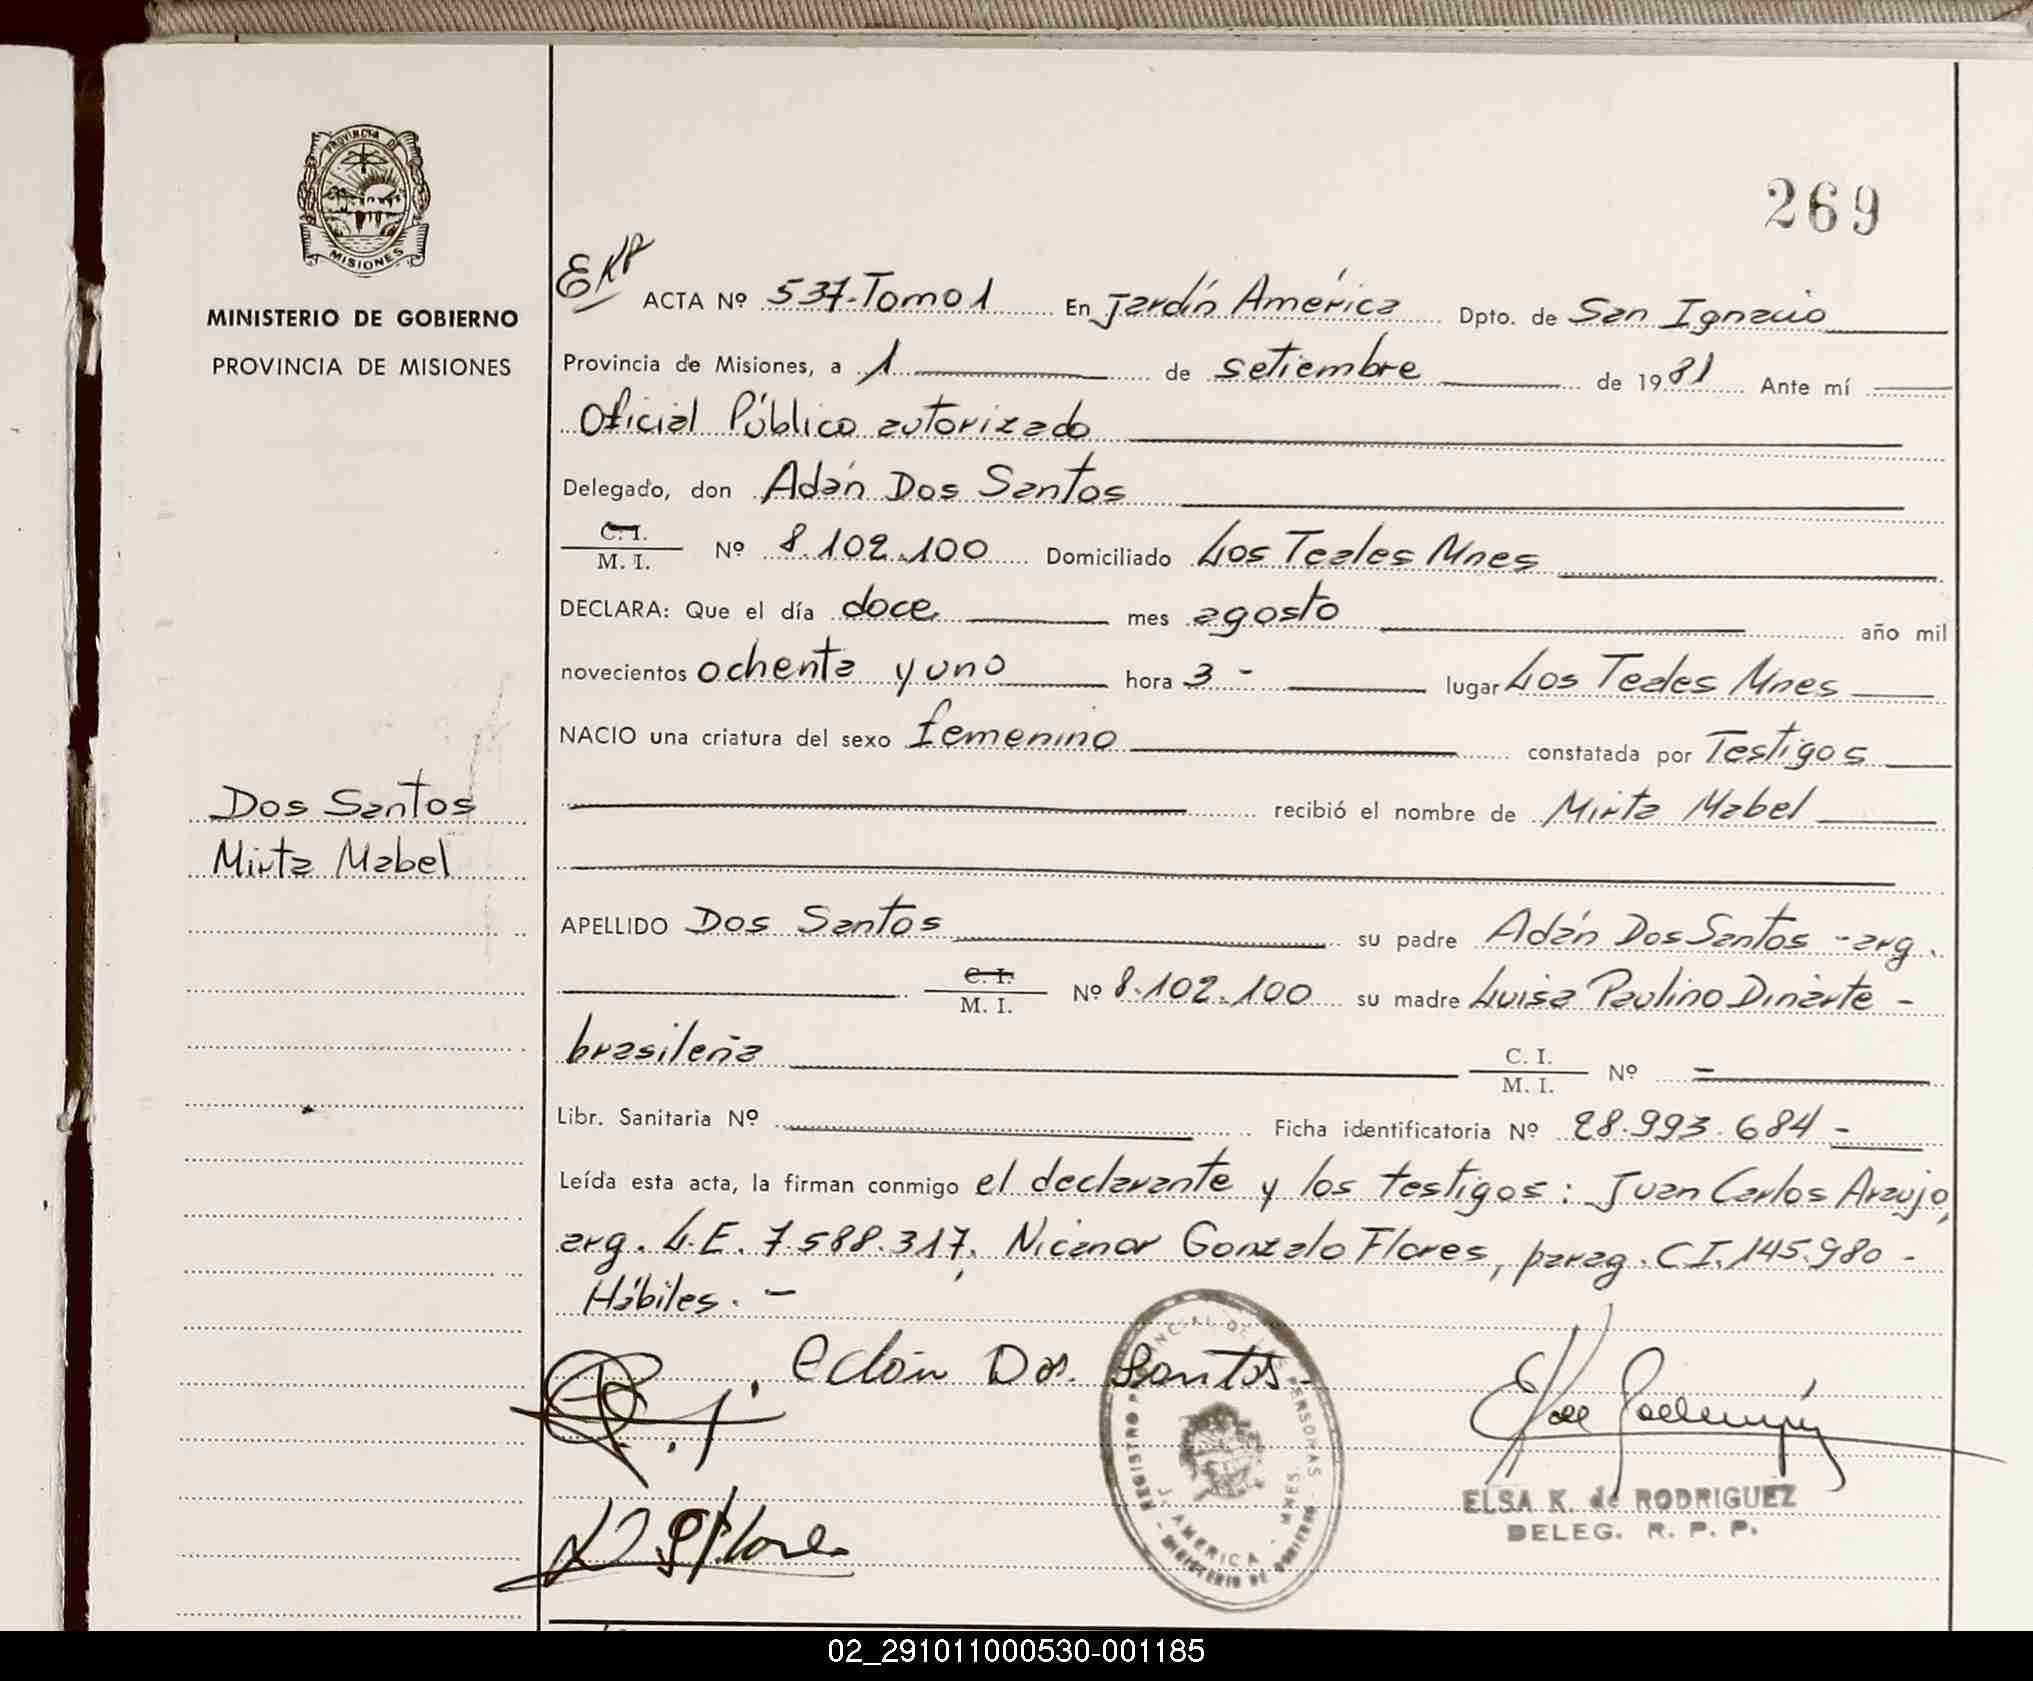 PROVINCIA DE
MISIONES
MINISTERIO DE GOBIERNO
PROVINCIA DE MISIONES
Dos Santos
Mirta Mabel
269
ACTA Nº 537-Tomo 1 En Jardín América Dpto. de San Ignacio
Provincia de Misiones, a 1 de setiembre de 1981 Ante mí
Oficial Público autorizado
Delegado, don Adán Dos Santos
C. I.
M. I. Nº 8.102.100 Domiciliado Los Teales Mnes
DECLARA: Que el día doce mes agosto año mil
novecientos ochenta y uno hora 3 - lugar Los Teales Mnes
NACIO una criatura del sexo femenino constatada por Testigos
recibió el nombre de Mirta Mabel
APELLIDO Dos Santos su padre Adán Dos Santos - arg.
C. I.
M. I. Nº 8.102.100 su madre Luisa Paulino Dinarte -
brasileña C. I.
M. I. Nº -
Libr. Sanitaria Nº Ficha identificatoria Nº 28.993.684 -
Leída esta acta, la firman conmigo el declarante y los testigos: Juan Carlos Araujo,
arg. L.E. 7.588.317, Nicanor Gonzalo Flores, parag. C.I. 145.980 -
Hábiles. -
Adán Dos Santos.
REGISTRO PROVINCIAL DE LAS PERSONAS
J. AMERICA - MNES.
- MINISTERIO DE GOBIERNO -
ELSA K. de RODRIGUEZ
DELEG. R. P. P.
02_291011000530-001185